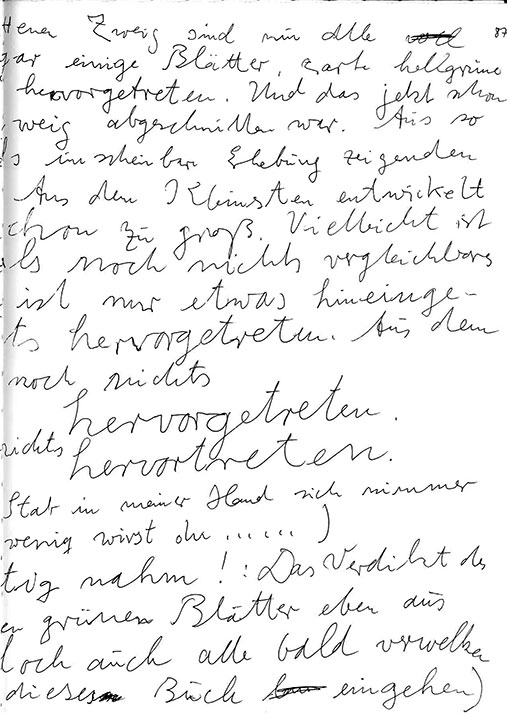 ener Zweig sind nun alle 87
gar einige Blätter, zarte hellgrüne
hervorgetreten. Und das jetzt schon
weig abgeschnitten war. Aus so
s unscheinbar Ehebung zeigenden
Aus dem Kleinsten entwickelt
chon zu groß. Vielleicht ist
ls noch nichts vergleichbares
ist nur etwas hineinge-
ts hervorgetreten. Aus dem
noch nichts
hervorgetreten.
nichts hervortreten.
Stab in meiner Hand sich nimmer
wenig wirst du ......)
tig nahm ! : Das Verdikt des
en grünen Blätter eben aus
loch auch alle bald verwelken
dieses Buch eingehen)